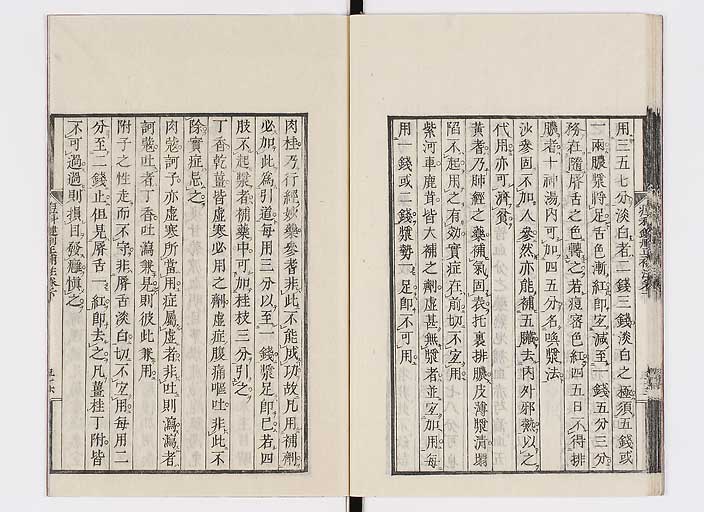 用三五七分淡白者二錢三錢淡白之極須五錢或
一兩膿漿將足舌色漸紅卽宜減至一錢五分三分
務在隨唇舌之色轉之若痘窖色紅四五日不得排
膿者十神湯內可加四五分名喚漿法
沙參固不如人參然亦能補五臟去內外邪熱以之
代用亦可濟貧
黃耆乃肺經之藥補氣固表托裏排膿皮薄漿清塌
陷不起用之有効實症在前切不宜用
紫河車鹿茸皆大補之劑虛甚無漿者並宜加用每
用一錢或二錢漿勢一足卽不可用
肉桂乃行經妙藥參耆非此不能成功故凡用補劑
必加此為引道每用三分以至一錢漿足卽已若四
肢不起漿者補藥中可加桂枝三分引之
丁香乾薑皆虛寒必用之劑虛症腹痛嘔吐非此不
除實症忌之
肉蔻訶子亦虛寒所當用症屬虛者非吐則瀉瀉者
訶蔻吐者丁香吐瀉兼見則彼此兼用
附子之性走而不守非唇舌淡白切不宜用每用二
分至二錢止但見唇舌一紅卽去之凡薑桂丁附皆
不可過過則損目發癰慎之